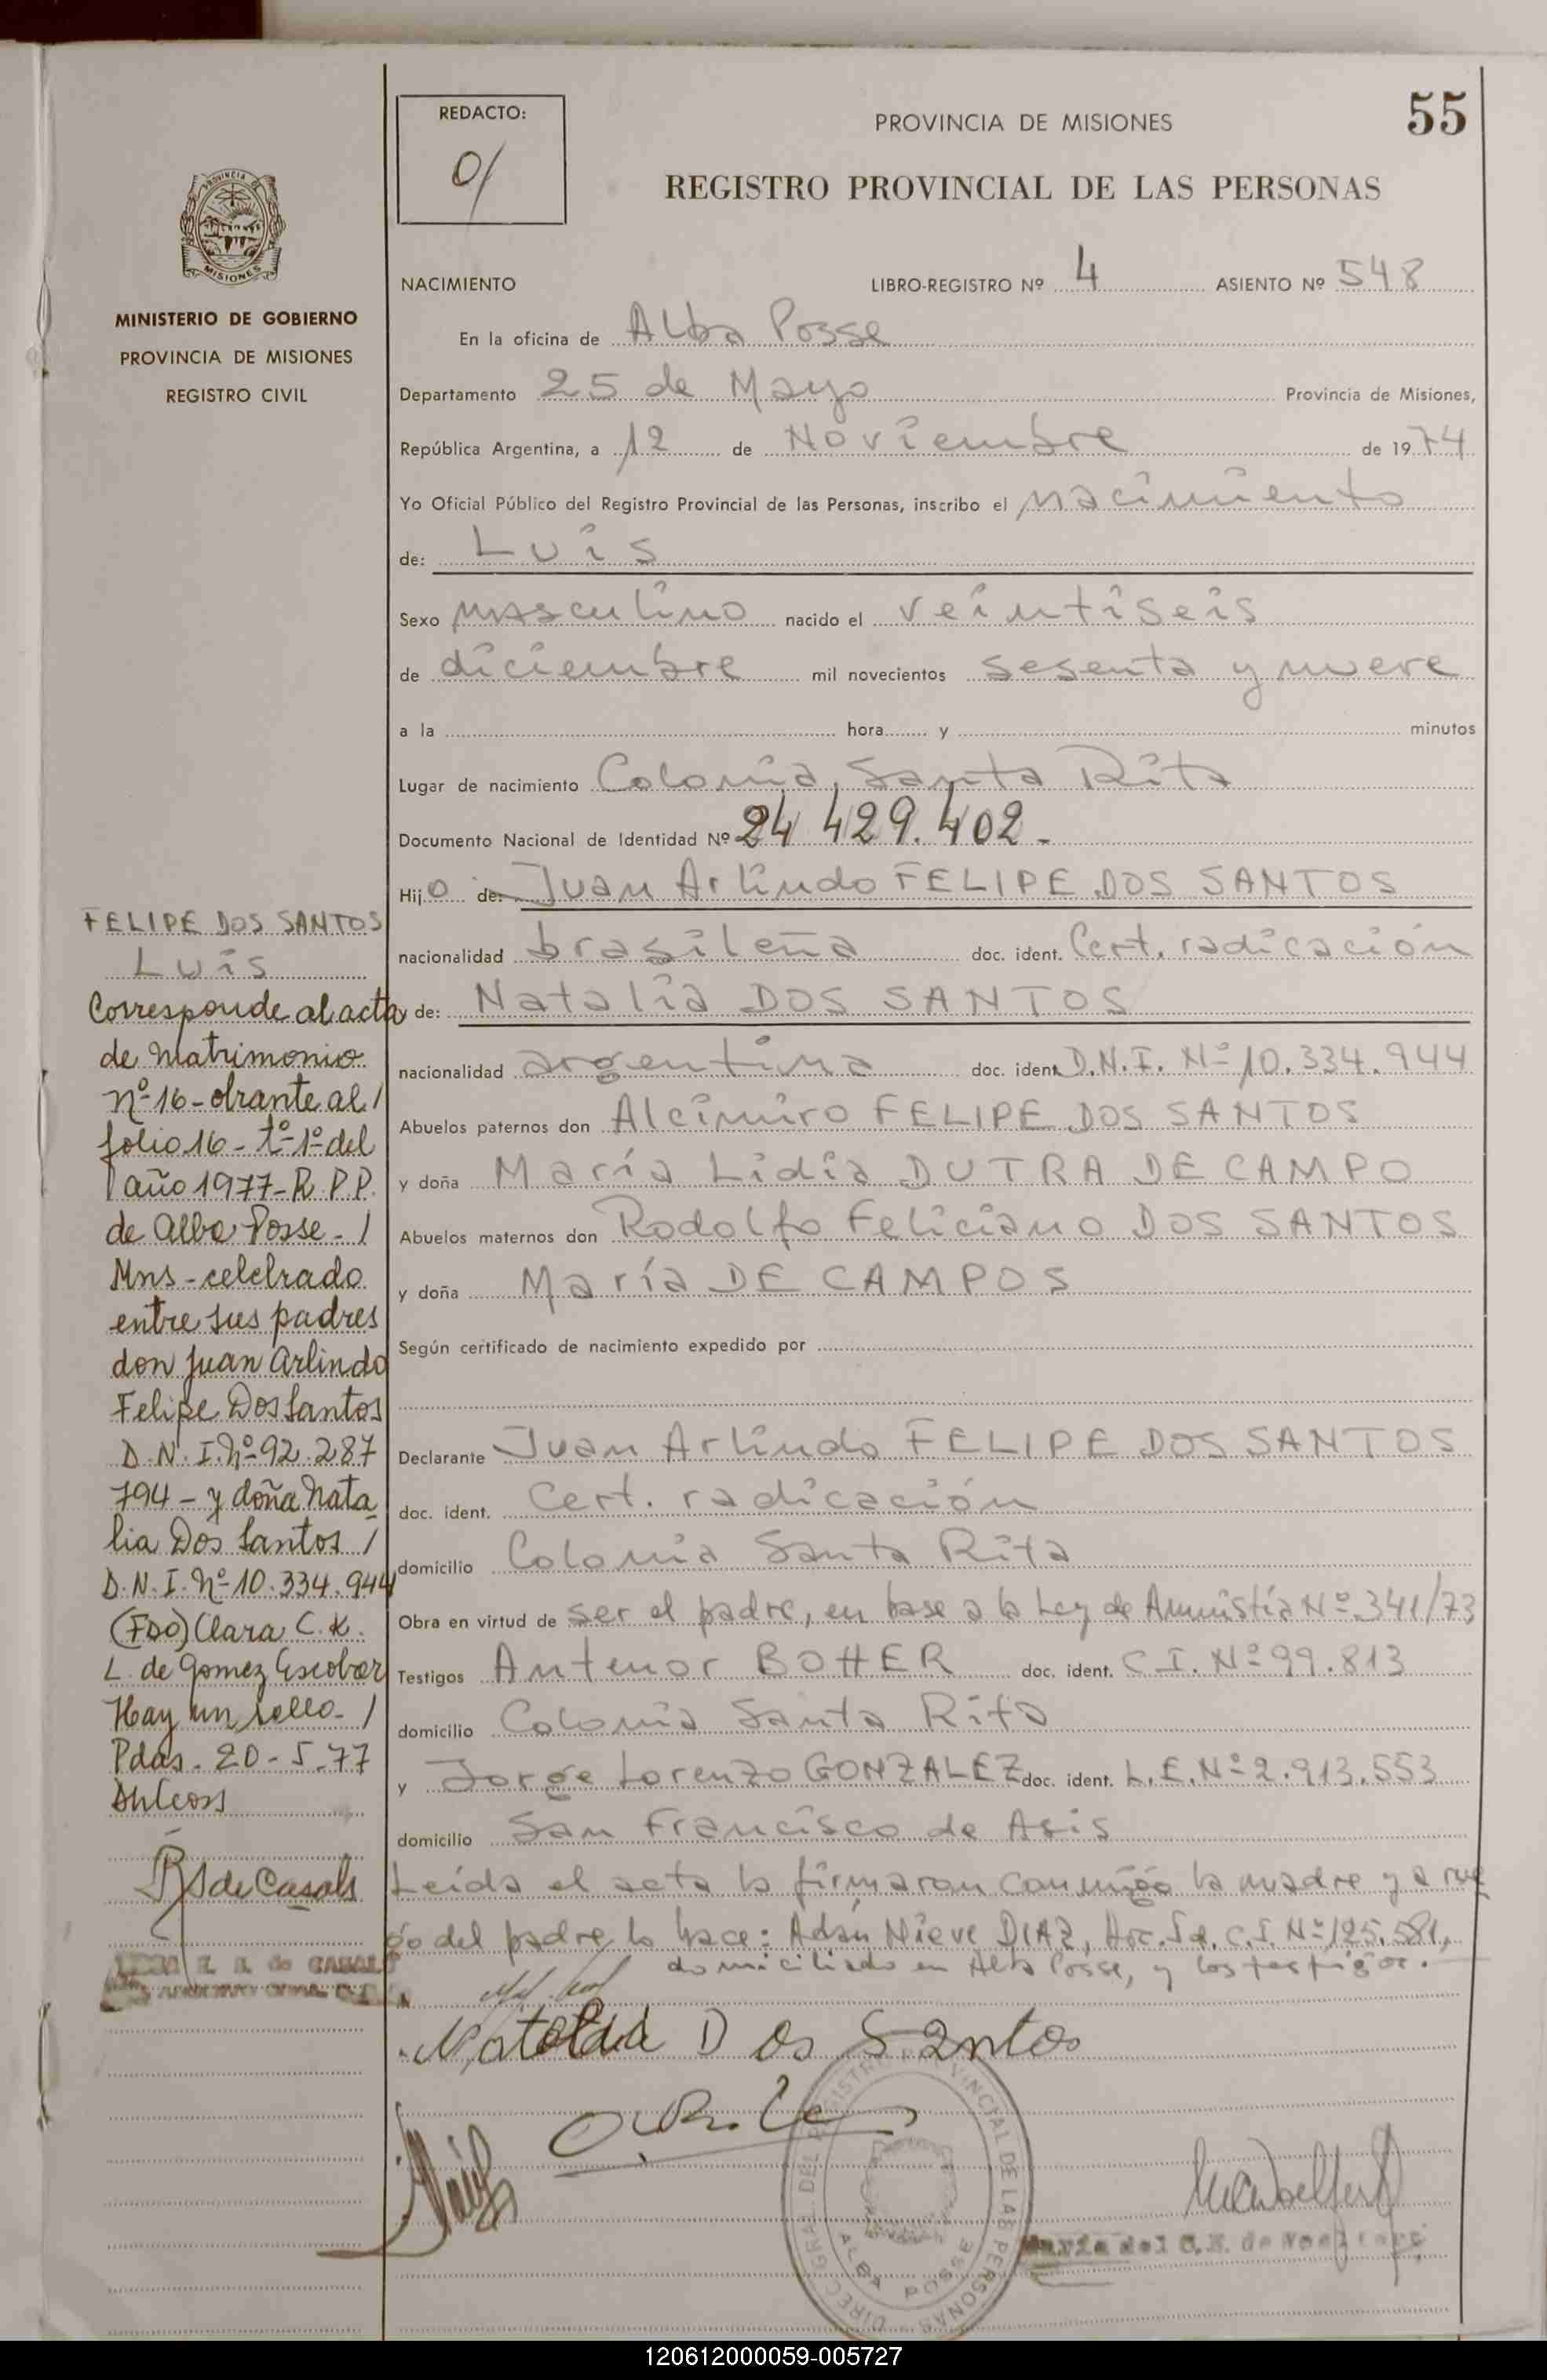 REDACTO:
PROVINCIA DE MISIONES
55
REGISTRO PROVINCIAL DE LAS PERSONAS
PROVINCIA DE
MISIONES
MINISTERIO DE GOBIERNO
PROVINCIA DE MISIONES
REGISTRO CIVIL
NACIMIENTO LIBRO-REGISTRO Nº 4 ASIENTO Nº 548
En la oficina de Alba Posse
Departamento 25 de Mayo Provincia de Misiones,
República Argentina, a 12 de Noviembre de 1974
Yo Oficial Público del Registro Provincial de las Personas, inscribo el nacimiento
de: Luis
Sexo masculino nacido el veintiseis
de diciembre mil novecientos sesenta y nueve
a la hora y minutos
Lugar de nacimiento Colonia Santa Rita
Documento Nacional de Identidad Nº 24 429.402.-
Hijo de: Juan Arlindo FELIPE DOS SANTOS
nacionalidad brasileña doc. ident. Cert. radicación
de: Natalia DOS SANTOS
nacionalidad argentina doc. ident. D.N.I. Nº 10.334.944
Abuelos paternos don Alcimiro FELIPE DOS SANTOS
y doña María Lidia DUTRA DE CAMPO
Abuelos maternos don Rodolfo Feliciano DOS SANTOS
y doña María DE CAMPOS
Según certificado de nacimiento expedido por
Declarante Juan Arlindo FELIPE DOS SANTOS
doc. ident. Cert. radicación
domicilio Colonia Santa Rita
Obra en virtud de ser el padre, en base a la Ley de Amnistía Nº 341/73
Testigos Antenor BOHER doc. ident. C.I. Nº 99.813
domicilio Colonia Santa Rita
y Jorge Lorenzo GONZALEZ doc. ident. L.E. Nº 2.913.553
domicilio San Francisco de Asis
Leída el acta la firmaron conmigo la madre y a rue
go del padre lo hace: Adán Nieve DIAZ, Arg. C.I. Nº 125.581,
domiciliado en Alba Posse, y los testigos.
Natalia Dos Santos
FELIPE DOS SANTOS
Luis
Corresponde al acta
de Matrimonio
nº 16 - obrante al /
folio 16 - tº 1º del
año 1977 - R.P.P.
de Alba Posse - /
Mns - celebrado
entre sus padres
don Juan Arlindo
Felipe Dos Santos
D.N.I. Nº 92.287
794 - y doña Nata
lia Dos Santos /
D.N.I. Nº 10.334.944
(FDO) Clara C.K.
L. de Gomez Escobar
Hay un sello - /
Pdas. 20-5-77
de Casals
de CASALS
DIREC. GRAL. DEL REGISTRO PROVINCIAL DE LAS PERSONAS
ALBA POSSE
María del C.
120612000059-005727